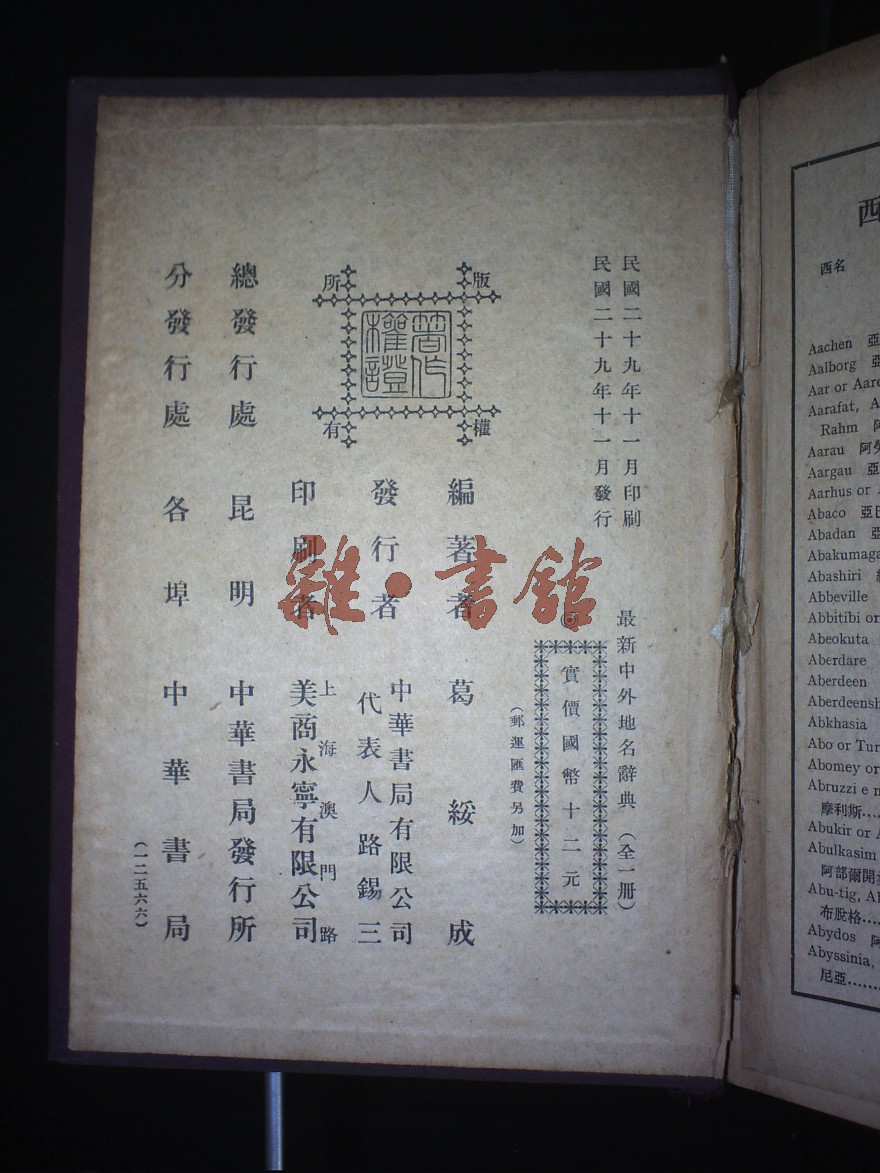 民國二十九年十一月印刷
民國二十九年十一月發行
最新中外地名辭典（全一册）
實價國幣十二元
（郵運匯費另加）
版權所有
著作權證
編著者 葛綏成
發行者 中華書局有限公司
代表人路錫三
印刷者 上海澳門路
美商永寧有限公司
總發行處 昆明 中華書局發行所
分發行處 各埠 中華書局
（一二五六六）
雜·書館
西
西名
Aachen
Aalborg
Aar or Aare
Aarafat, A
Rahm
Aarau
Aargau
Aarhus or
Abaco
Abadan
Abakumaga
Abashiri
Abbeville
Abbitibi or
Abeokuta
Aberdare
Aberdeen
Aberdeensh
Abkhasia
Abo or Tur
Abomey or
Abruzzi e
摩利斯
Abukir or A
Abulkasim
阿部爾開
Abu-tig, A
布脫格
Abydos
Abyssinia,
尼亞